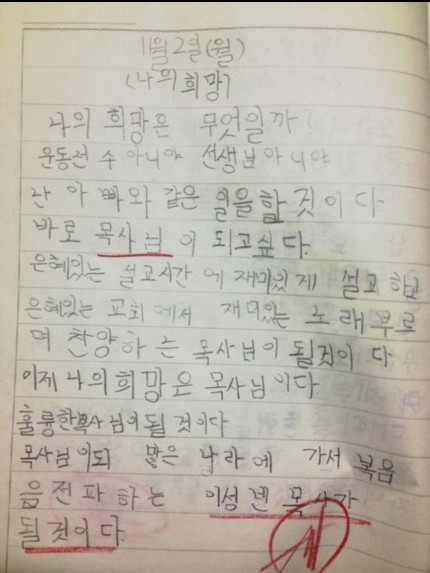 11월 2일(월)
(나의희망)
나의 희망은 무엇일까?
운동선수 아니야 선생님아니야
난 아빠와 같은 일을할 것이다
바로 목사님이 되고싶다.
은혜있는 설교시간에 재미있게 설교하고
은혜있는 교회에서 재미있는 노래부르
며 찬양하는 목사님이 될것이다
이제 나의희망은 목사님이다
훌륭한목사님이될것이다
목사님이되 많은 나라에 가서 복음
음전파하는 목사가
될것이다.